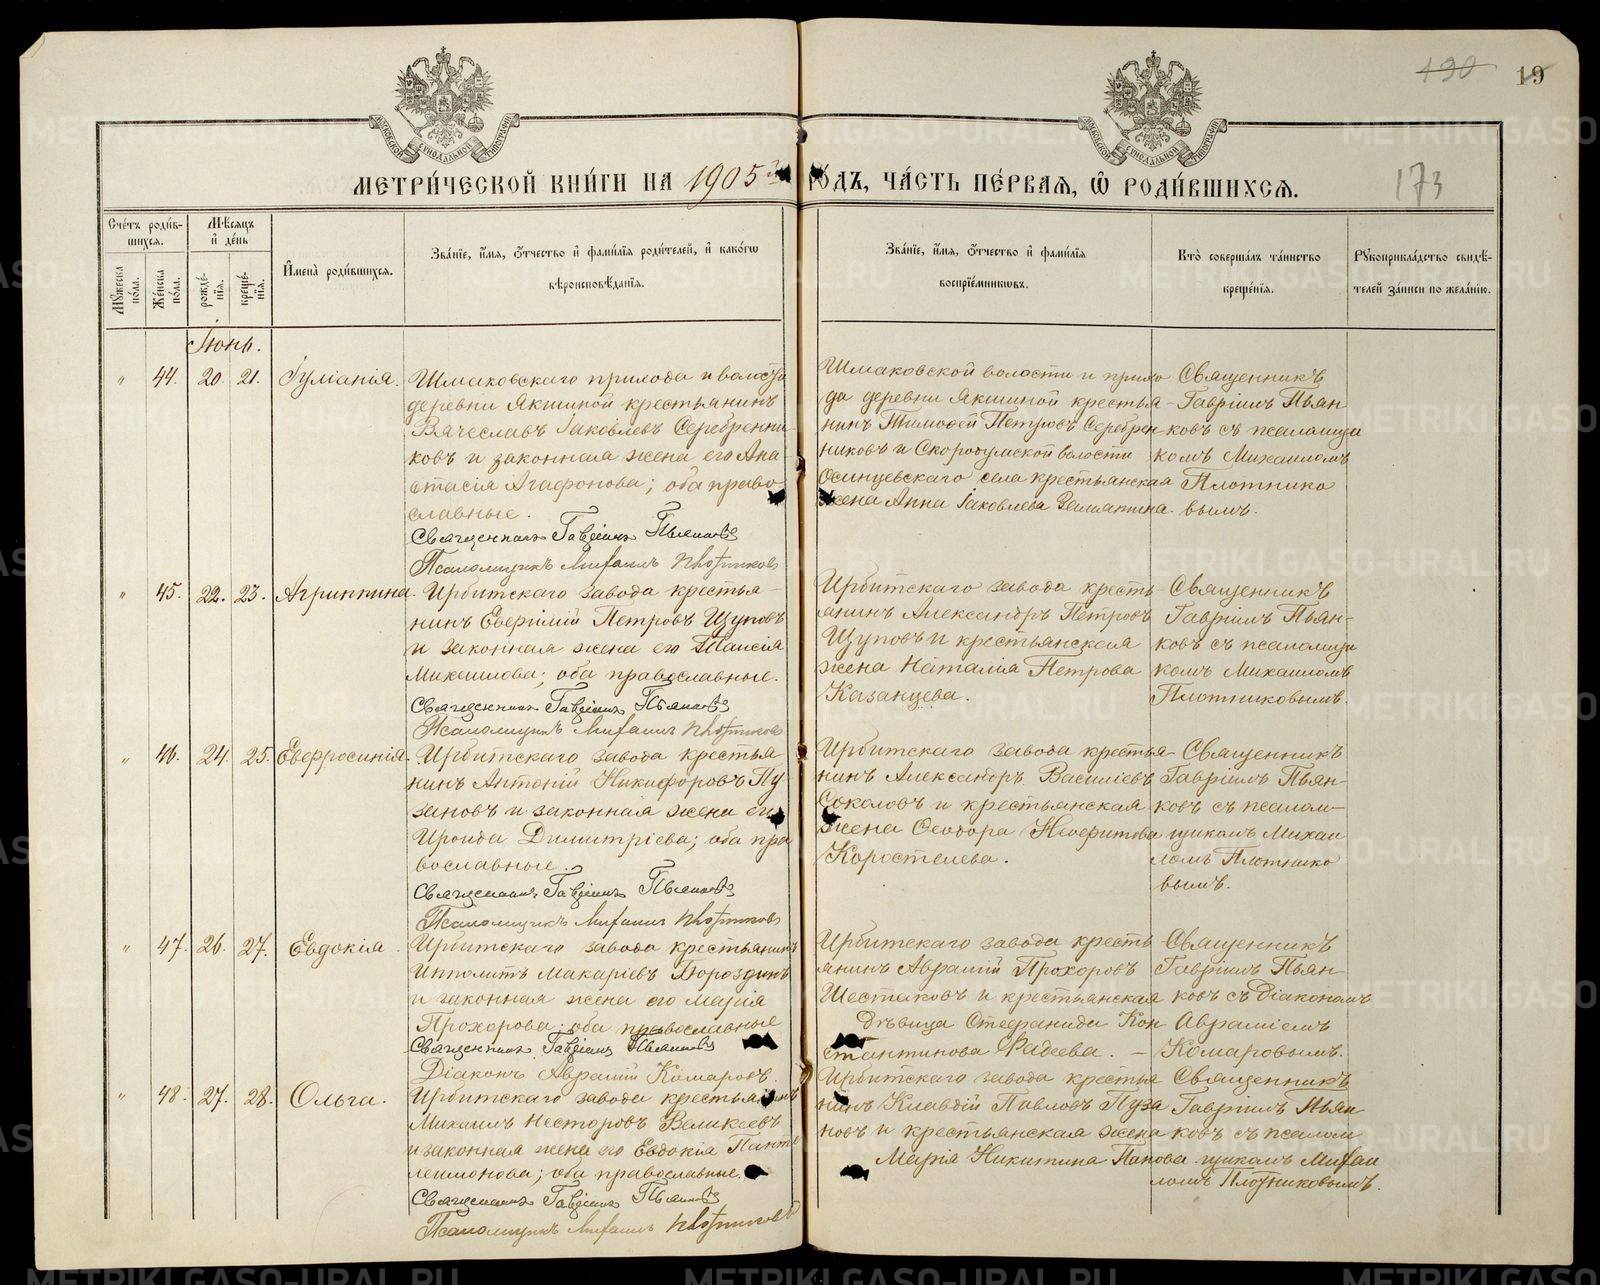 130
19
МЕТРИ́ЧЕСКОЙ КНИ́ГИ НА 1905й ГО́ДЪ, ЧА́СТЬ ПЕ́РВАЯ, Ѡ РОДИ́ВШИХСЯ.
173
Сче́тъ роди́в-
шихся.
Мѣ́сяцъ
и҆ де́нь
И҆мена̀ роди́вшихся.
Зва́нїе, и҆́мя, ѻ҆́тчество и҆ фами́лїя роди́телей, и҆ како́гѡ
вѣроисповѣ́данїя.
Зва́нїе, и҆́мя, ѻ҆́тчество и҆ фами́лїя
воспрїе́мникѡвъ.
Кто̀ соверша́лъ та́инство
креще́нїя.
Рꙋкоприкла́дство свидѣ́-
телей за́писи по жела́нїю.
Мꙋ́жеска по́ла.
Же́нска по́ла.
рожде́-нїя.
креще́-нїя.
Іюнь.
" 44. 20. 21. Іуліанія.
Шмаковскаго прихода и волости
деревни Якшиной крестьянинъ
Вячеславъ Іаковлевъ Серебренни
ковъ и законная жена его Ана
стасія Агафонова; оба право
славные.
Священникъ Гавріилъ Пьянковъ
Псаломщикъ Михаилъ Плотниковъ
Шмаковской волости и прихо
да деревни Якшиной крестья-
нинъ Тимофей Петровъ Серебрен-
никовъ и Скородумской волости
Осинцевскаго села крестьянская
жена Анна Іаковлева Замятина.
Священникъ
Гавріилъ Пьян
ковъ съ псаломщи
комъ Михаиломъ
Плотнико
вымъ.
" 45. 22. 23. Агриппина.
Ирбитскаго завода крестья-
нинъ Евфимій Петровъ Щуповъ
и законная жена его Таисія
Михаилова; оба православные.
Священникъ Гавріилъ Пьянковъ
Псаломщикъ Михаилъ Плотниковъ
Ирбитскаго завода кресть-
янинъ Александръ Петровъ
Щуповъ и крестьянская
жена Наталія Петрова
Казанцева.
Священникъ
Гавріилъ Пьян-
ковъ съ псаломщи
комъ Михаиломъ
Плотниковымъ.
" 46. 24. 25. Евфросинія.
Ирбитскаго завода крестья
нинъ Антоній Никифоровъ Пу
зановъ и законная жена его
Ироида Димитріева; оба пра
вославные.
Священникъ Гавріилъ Пьянковъ
Псаломщикъ Михаилъ Плотниковъ
Ирбитскаго завода крестья-
нинъ Александръ Василіевъ
Соколовъ и крестьянская
жена Ѳеодора Неофитова
Коростелева.
Священникъ
Гавріилъ Пьян-
ковъ съ псалом-
щикомъ Михаи
ломъ Плотнико
вымъ.
" 47. 26. 27. Евдокія.
Ирбитскаго завода крестьянинъ
Ипполитъ Макаріевъ Бороздинъ
и законная жена его Марія
Прохорова; оба православные
Священникъ Гавріилъ Пьянковъ
Діаконъ Авраамій Комаровъ.
Ирбитскаго завода кресть
янинъ Авраамій Прохоровъ
Шестаковъ и крестьянская
дѣвица Стефанида Кон
стантинова Фадеева. —
Священникъ
Гавріилъ Пьян
ковъ съ діакономъ
Авраміемъ
Комаровымъ.
" 48. 27. 28. Ольга.
Ирбитскаго завода крестьянинъ
Михаилъ Несторовъ Великсевъ
и законная жена его Евдокія Панте
леимонова; оба православные.
Священникъ Гавріилъ Пьянковъ
Псаломщикъ Михаилъ Плотниковъ
Ирбитскаго завода крестья
нинъ Клавдій Павловъ Пуза
новъ и крестьянская жена
Марія Никитина Панова
Священникъ
Гавріилъ Пьян
ковъ съ псалом
щикомъ Михаи
ломъ Плотниковымъ.